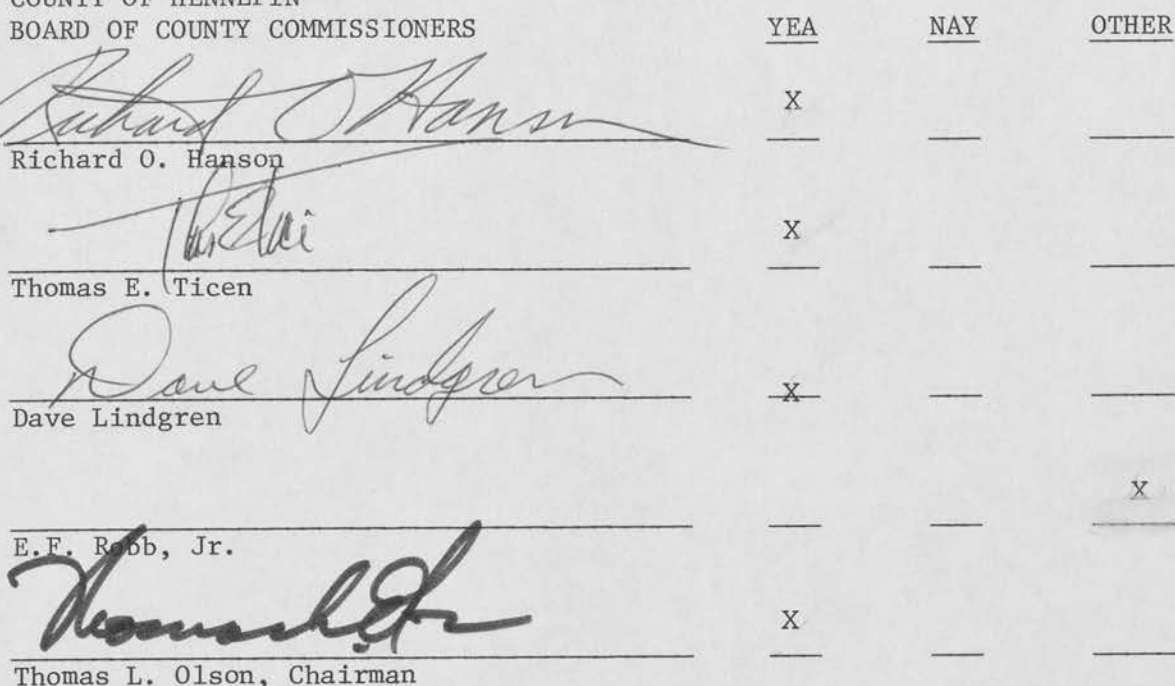 COUNTY OF HENNEPIN
BOARD OF COUNTY COMMISSIONERS YEA NAY OTHER
Richard O Hanson X
Richard O. Hanson
X
Thomas E. Ticen
Dave Lindgren X
Dave Lindgren
X
E.F. Robb, Jr.
X
Thomas L. Olson, Chairman